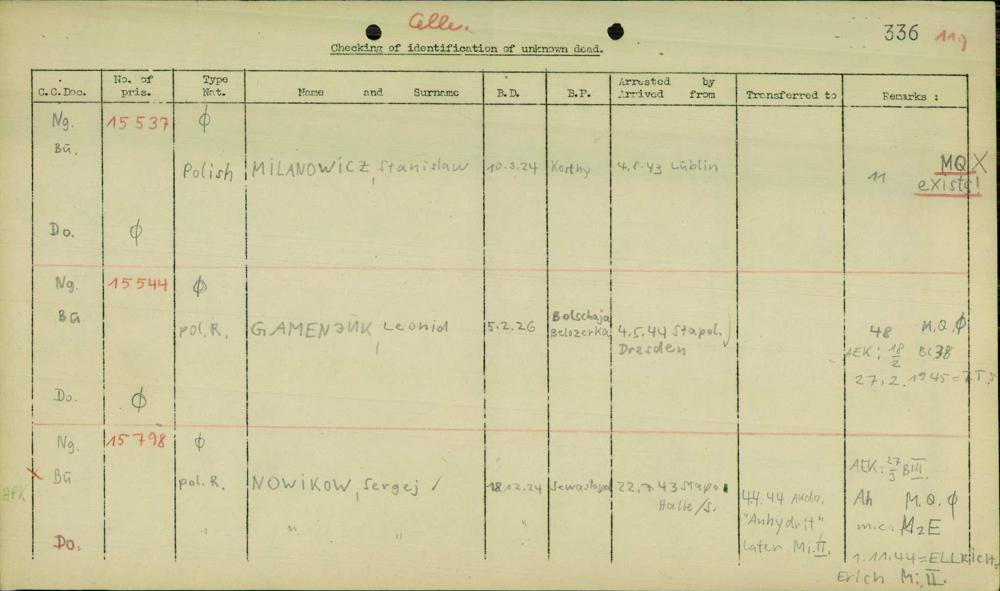 Celle.
336 119
Checking of identification of unknown dead.
C.C.Doc. No. of pris. Type Nat. Name and Surname B.D. B.P. Arrested by Arrived from Transferred to Remarks :
Ng. 15 537 ϕ
Bü.
Polish MILANOWICZ, Stanislaw 10.3.24 4.8.43 Lüblin 11 MQ X
existe!
Do. ϕ
Ng. 15 544 ϕ
Bü Bolschaja
pol. R. Leonid 5.2.26 Belozerka 4.5.44 Stapol. 48 M.Q. ϕ
Dresden AEK: 18/2 Bl 38
27.2.1945 =
Do. ϕ
Ng. 15 798 ϕ
AEK: 27/3 B III.
Bü
HPK pol. R. NOWIKOW, Sergej / 18.12.24 Sewastopol 22.7.43 Stapo 4.4.44 Ando. Ah M.Q. ϕ
Halle/S. "Anhydrit" m.c. M2E
" " " "
Do. later Mi. II. 1.11.44 = ELLRICH,
Erich Mi. II.